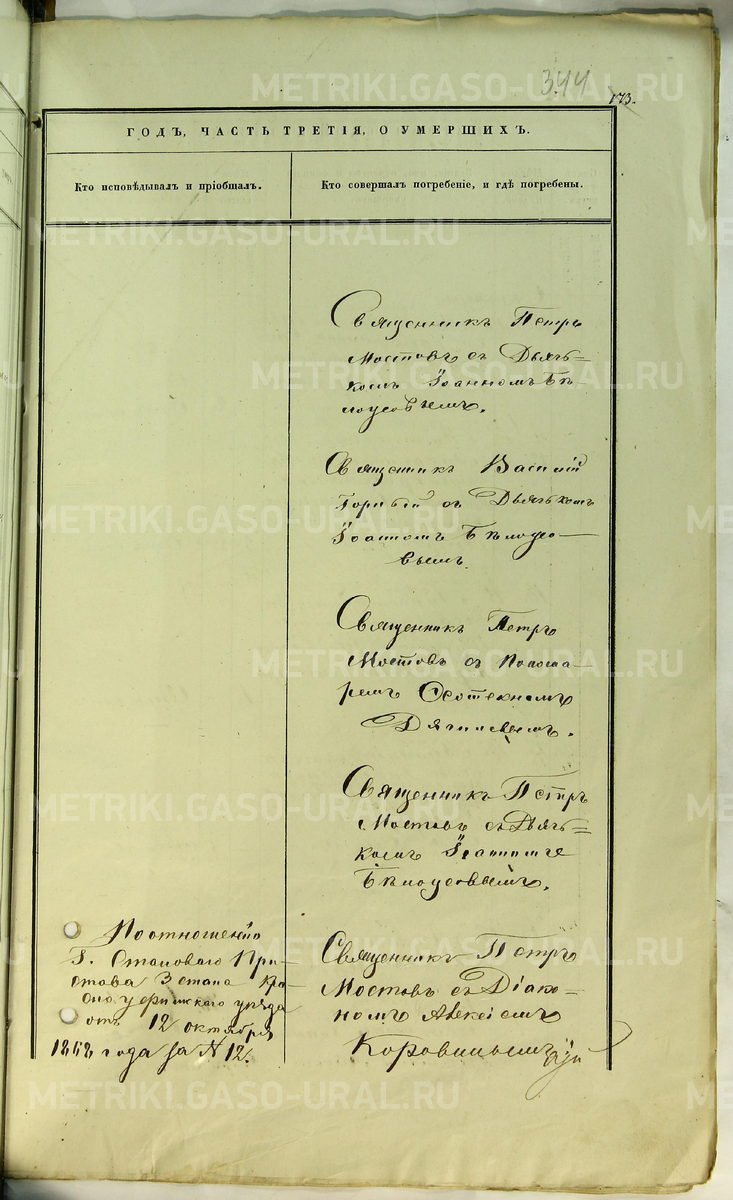 344
173.
ГОДЪ, ЧАСТЬ ТРЕТІЯ, О УМЕРШИХЪ.
Кто исповѣдывалъ и пріобщалъ.
Кто совершалъ погребеніе, и гдѣ погребены.
Священникъ Петръ
Мостовъ съ Дьячь=
комъ Іоанномъ Бѣ
лоусовымъ.
Священникъ Василій
Горный съ Дьячькомъ
Іоанномъ Бѣлоусо—
вымъ.
Священникъ Петръ
Мостовъ съ Понома—
ремъ
Дягилевымъ.
Священникъ Петръ
Мостовъ съ Дьячь=
комъ Іоанномъ
Бѣлоусовымъ.
По отношенію
Г. Становаго При—
става 3 стана Кра—
сноуфимскаго уѣзда
отъ 12 октября
1868 года за N 12.
Священникъ Петръ
Мостовъ съ Діако—
номъ Алексіемъ
Коровинымъ
METRIKI.GASO-URAL.RU